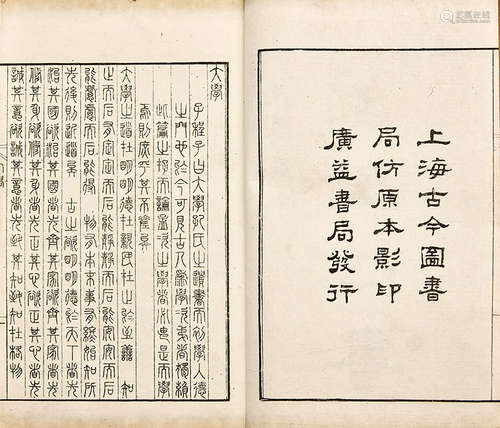 上海古今圖書
局仿原本影印
廣益書局發行
大學
子程子曰大學孔氏之遺書而初學入德
之門也於今可見古人為學次第者獨賴
此篇之存而論孟次之學者必由是而學
焉則庶乎其不差矣
大學之道在明明德在親民在止於至善 知
止而后有定定而后能靜靜而后能安安而后
能慮慮而后能得 物有本末事有終始知所
先後則近道矣 古之欲明明德於天下者先
治其國欲治其國者先齊其家欲齊其家者先
修其身欲修其身者先正其心欲正其心者先
誠其意欲誠其意者先致其知致知在格物